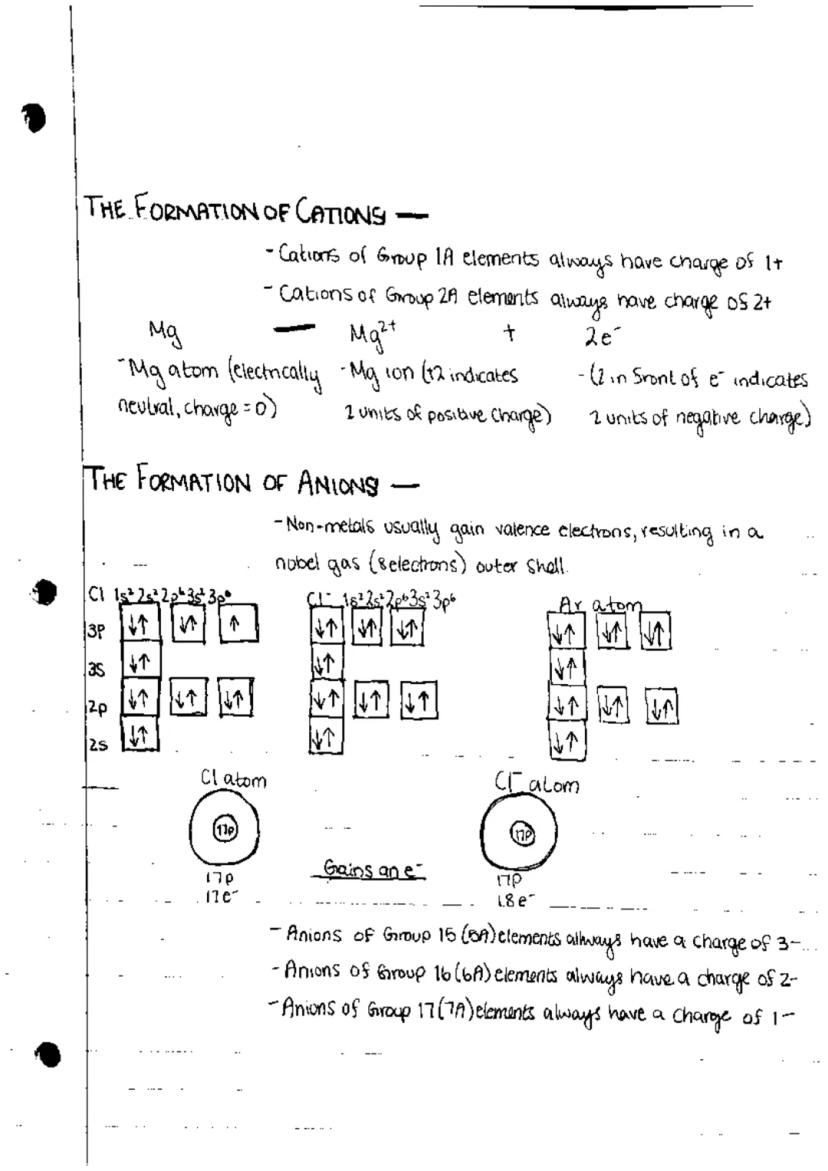 THE FORMATION OF CATIONS —
- Cations of Group 1A elements always have charge of 1+
- Cations of Group 2A elements always have charge of 2+
Mg — Mg²⁺ + 2e⁻
- Mg atom (electrically - Mg ion (+2 indicates - (2 in front of e⁻ indicates
neutral, charge = 0) 2 units of positive charge) 2 units of negative charge)
THE FORMATION OF ANIONS —
- Non-metals usually gain valence electrons, resulting in a
nobel gas (8electrons) outer shell.
Cl 1s²2s²2p⁶3s²3p⁶ Cl⁻ 1s²2s²2p⁶3s²3p⁶ Ar atom
3p ↓↑ ↓↑ ↑ ↓↑ ↓↑ ↓↑ ↓↑ ↓↑ ↓↑
3s ↓↑ ↓↑ ↓↑
2p ↓↑ ↓↑ ↓↑ ↓↑ ↓↑ ↓↑ ↓↑ ↓↑ ↓↑
2s ↓↑ ↓↑ ↓↑
Cl atom Cl⁻ atom
17p 17p
Gains an e⁻
17p 17p
17e⁻ 18e⁻
- Anions of Group 15 (5A) elements allways have a charge of 3-
- Anions of Group 16 (6A) elements always have a charge of 2-
- Anions of Group 17 (7A) elements always have a charge of 1-